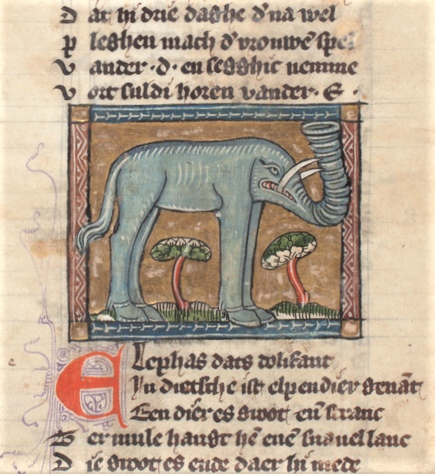 Dat hi drie daghe d'na wel
pleghen mach d'vrouwē spel
Vander · D · en segghic nemme
Vort suldi horen vander · E ·
Elephas dats dolifant
In dietsche ist elpendier genāt
Een dier es groot eñ stranc
Ser mule hangt hē enē snauel lanc
Die groot es ende daer hi mede